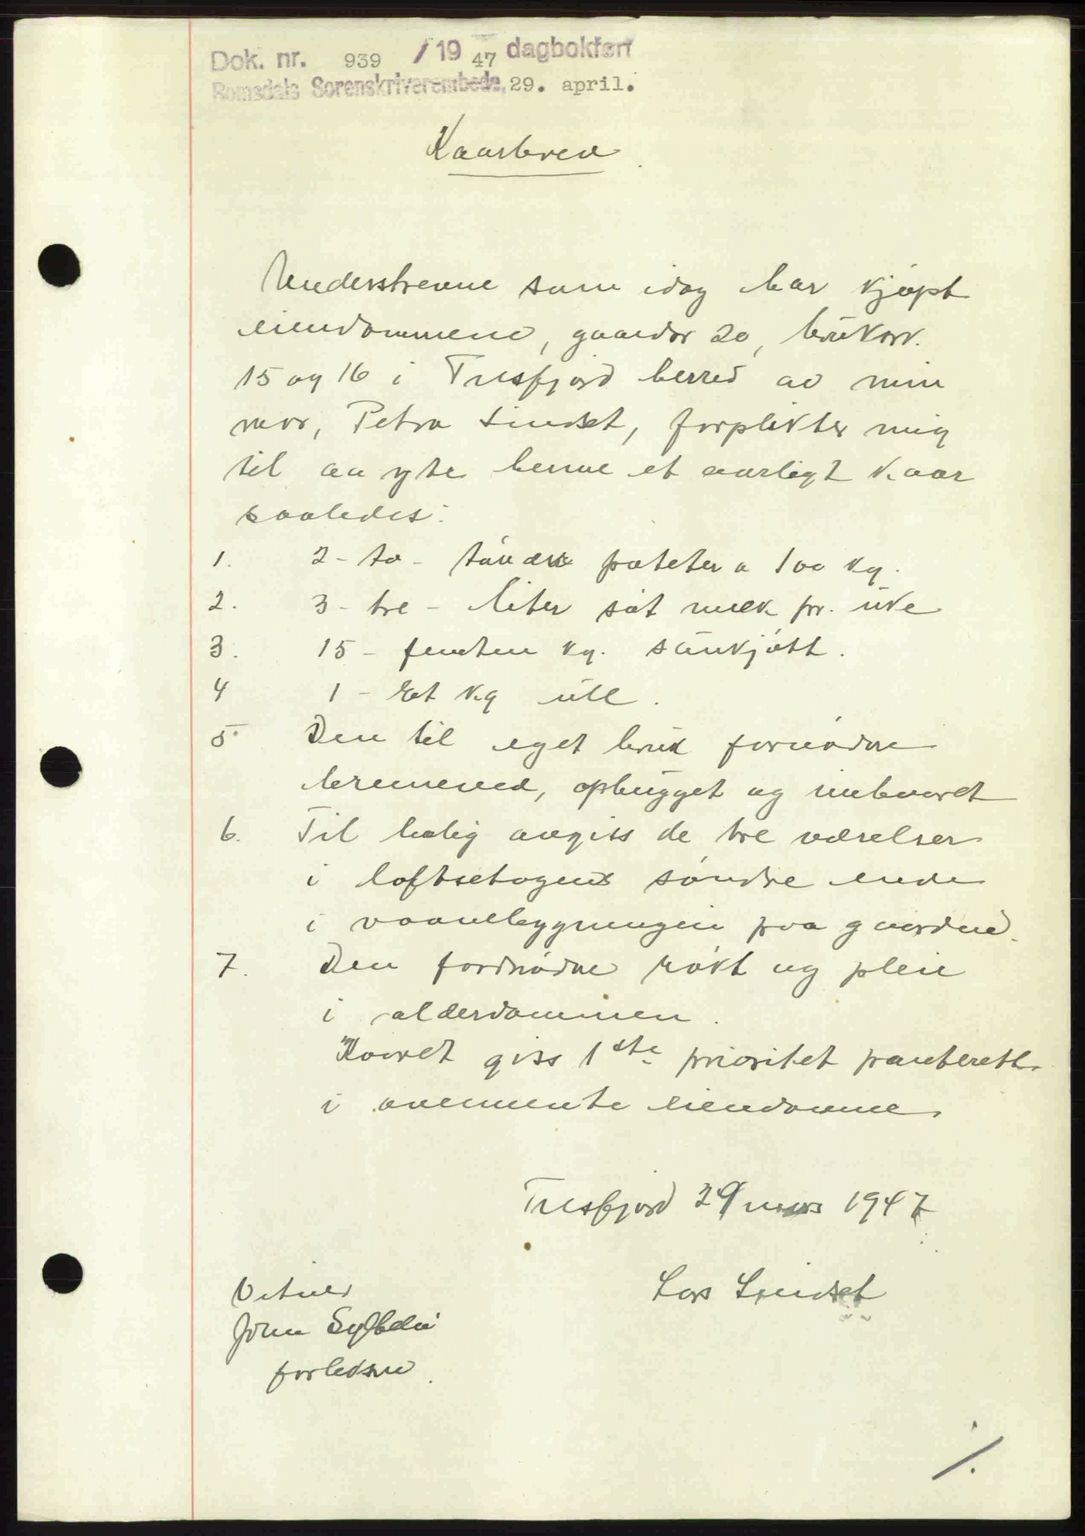 Dok. nr. 939 / 19 47 dagbokført
Romsdals Sorenskriverembede, 29. april.
Kaarbrev
Underskrevne som idag har kjøpt
eiendommene, gaardnr 20, bruksnr.
15 og 16 i Tresfjord herred av min
mor, Petra Lindset, forplikter mig
til aa yte henne et aarligt kaar
saaledes:
1. 2 - to - tønder poteter a 100 kg.
2. 3 - tre - liter søt melk pr. uke
3. 15 - femten kg. saukjøtt.
4 1 - Et kg ull.
5 Den til eget bruk fornødne
brenneved, ophugget og innbaaret
6. Til bolig avgiss de tre værelser
i loftsetagens søndre ende
i vaanebygningen paa gaarden.
7. Den fornødne røkt og pleie
i alderdommen.
Kaaret giss 1ste prioritet panterett
i ovennevnte eiendomme.
Tresfjord 29 mars 1947
Lars Lindset
Vitner
John
forliksm.